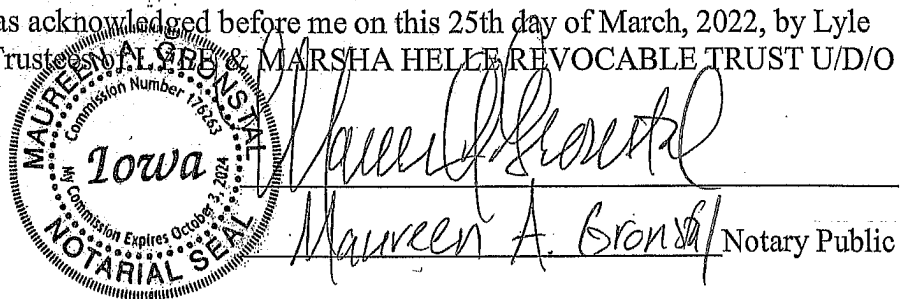 as acknowledged before me on this 25th day of March, 2022, by Lyle
Trustees of LYLE & MARSHA HELLE REVOCABLE TRUST U/D/O
MAUREEN A. GRONSTAL
Commission Number 176263
Iowa
My Commission Expires October 3, 2024
NOTARIAL SEAL
Maureen A. Gronstal
Maureen A. Gronstal Notary Public